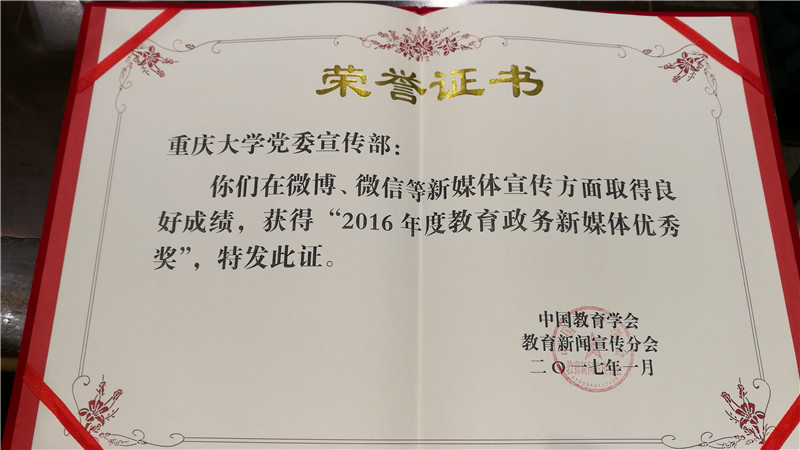 荣誉证书
重庆大学党委宣传部：
你们在微博、微信等新媒体宣传方面取得良
好成绩，获得“2016年度教育政务新媒体优秀
奖”，特发此证。
中国教育学会
教育新闻宣传分会
二〇一七年一月